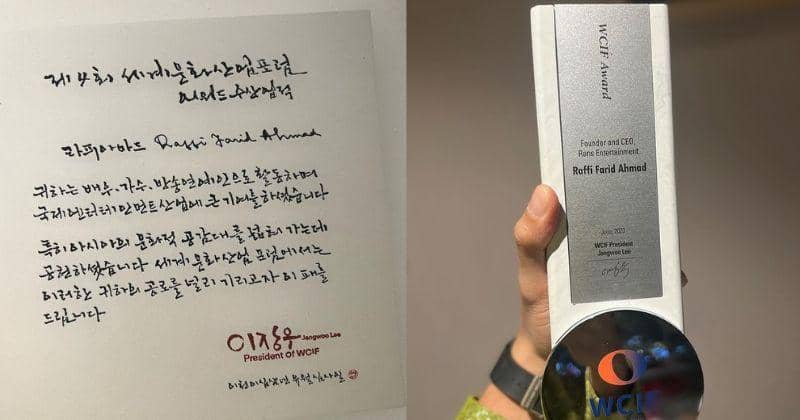 제4회 세계문화산업포럼
어워드 수상업적
라피아마드 Raffi Farid Ahmad
귀하는 배우, 가수, 방송연예인으로 활동하며
국제엔터테인먼트산업에 큰 기여를 하셨습니다
특히 아시아의 문화적 공감대를 넓혀 가는데
공헌하셨습니다 세계문화산업포럼에서는
이러한 귀하의 공로를 널리 기리고자 이 패를
드립니다
이장우 Jangwoo Lee
President of WCIF
WCIF Award
Founder and CEO,
Rans Entertainment
Raffi Farid Ahmad
WCIF President
Jangwoo Lee
WCIF